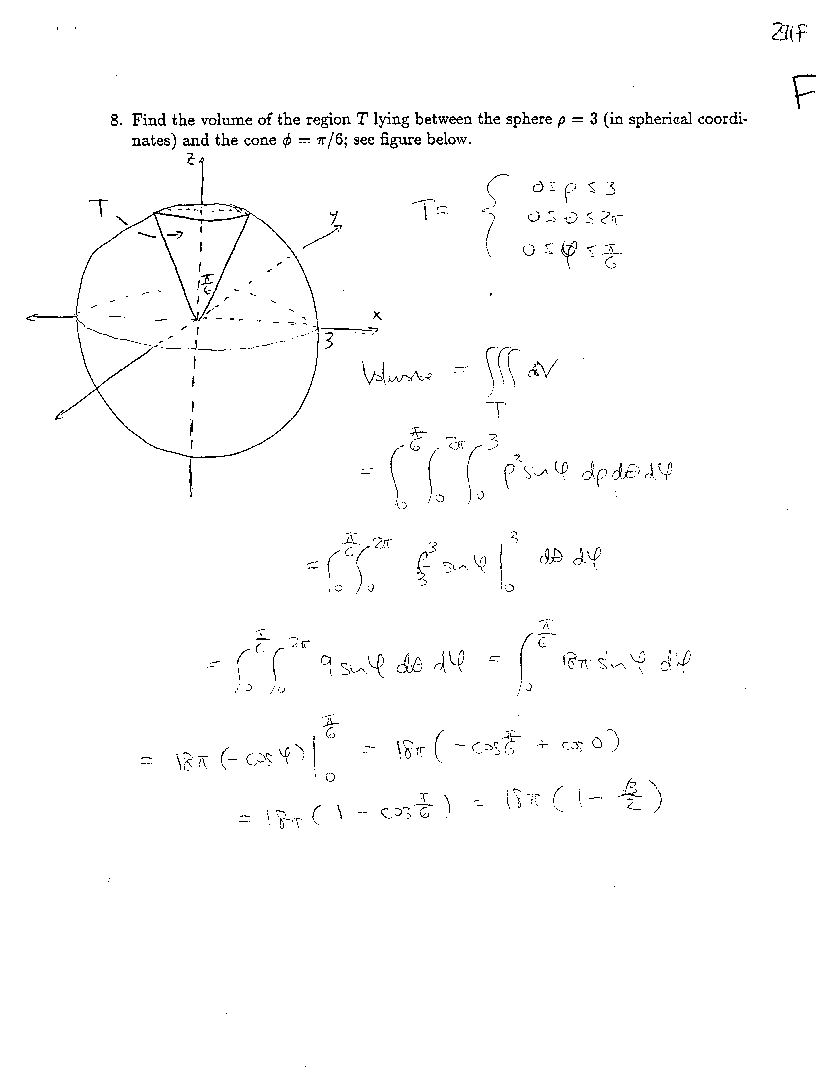 F
8. Find the volume of the region T lying between the sphere ρ = 3 (in spherical coordi-
nates) and the cone φ = π/6; see figure below.
z
T
y
π/6
x
3
T = { 0 ≤ ρ ≤ 3
0 ≤ θ ≤ 2π
0 ≤ φ ≤ π/6
Volume = ∭_T dV
= ∫_0^{π/6} ∫_0^{2π} ∫_0^3 ρ² sin φ dρ dθ dφ
= ∫_0^{π/6} ∫_0^{2π} ρ³/3 sin φ |_0^3 dθ dφ
= ∫_0^{π/6} ∫_0^{2π} 9 sin φ dθ dφ = ∫_0^{π/6} 18π sin φ dφ
= 18π (- cos φ) |_0^{π/6} = 18π ( - cos π/6 + cos 0 )
= 18π ( 1 - cos π/6 ) = 18π ( 1 - √3/2 )